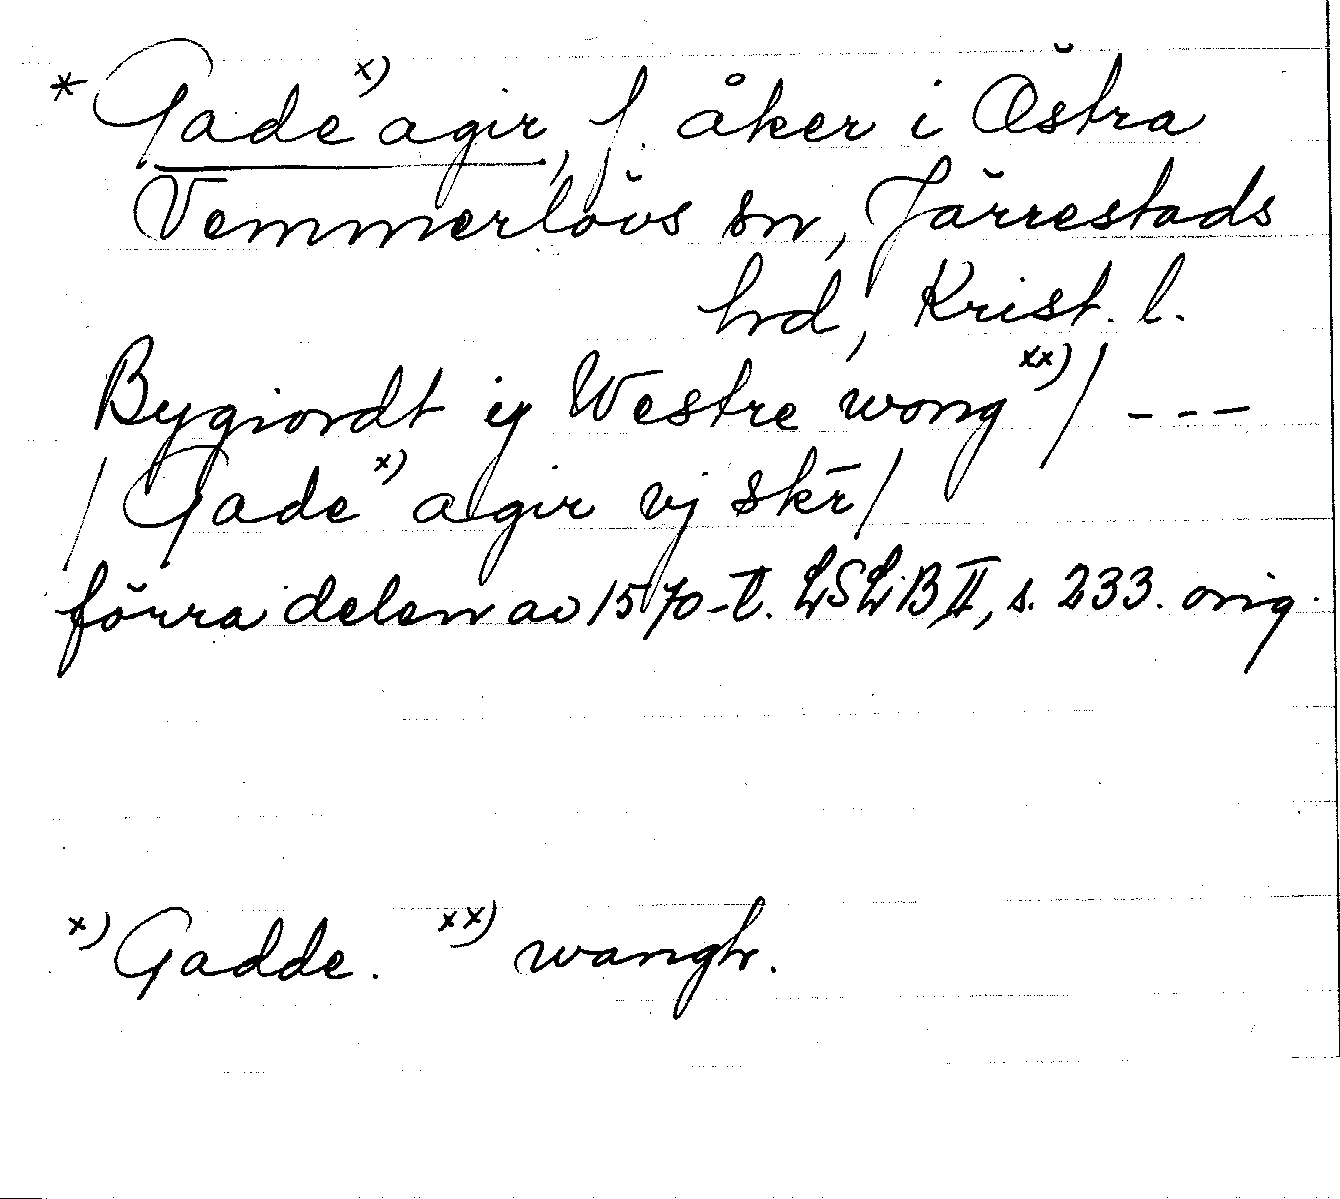 * Gade x) agir, f. åker i Östra
Vemmerlövs sn, Järrestads
hrd, Krist. l.
Bygiordt ij Westre wong xx) / ---
/ Gade x) agir vj skr̄ /
förra delen av 1570-t. LSLB II, s. 233. orig.
x) Gadde. xx) wangh.